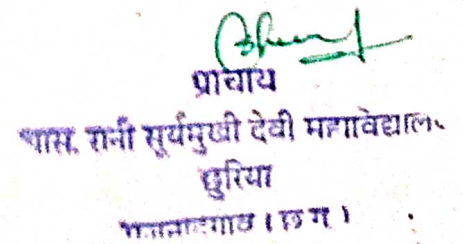 प्राचार्य
शास. रानी सूर्यमुखी देवी महाविद्याल.
छुरिया
राजनांदगांव (छ.ग.)